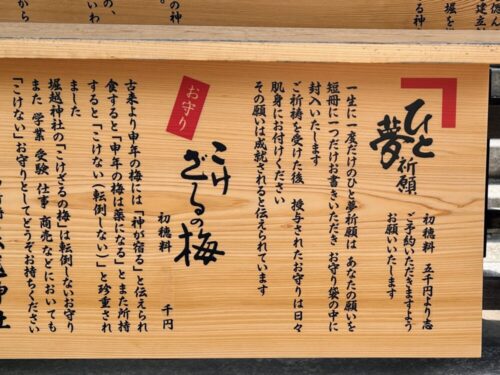 ひと夢祈願
初穂料 五千円より志
ご予約いただきますよう
お願いいたします
一生に一度だけのひと夢祈願は あなたの願いを
短冊に一つだけお書きいただき お守り袋の中に
封入いたします
ご祈祷を受けた後 授与されたお守りは日々
肌身にお付けください
その願いは成就されると伝えられています
お守り
こけざるの梅
初穂料 千円
古来より申年の梅には「神が宿る」と伝えられ
食すると「申年の梅は薬になる」とまた所持
すると「こけない(転倒しない)」と珍重され
ました
堀越神社の「こけざるの梅」は転倒しないお守り
また 学業 受験 仕事 商売などにおいても
「こけない」お守りとしてどうぞお持ちください
神社